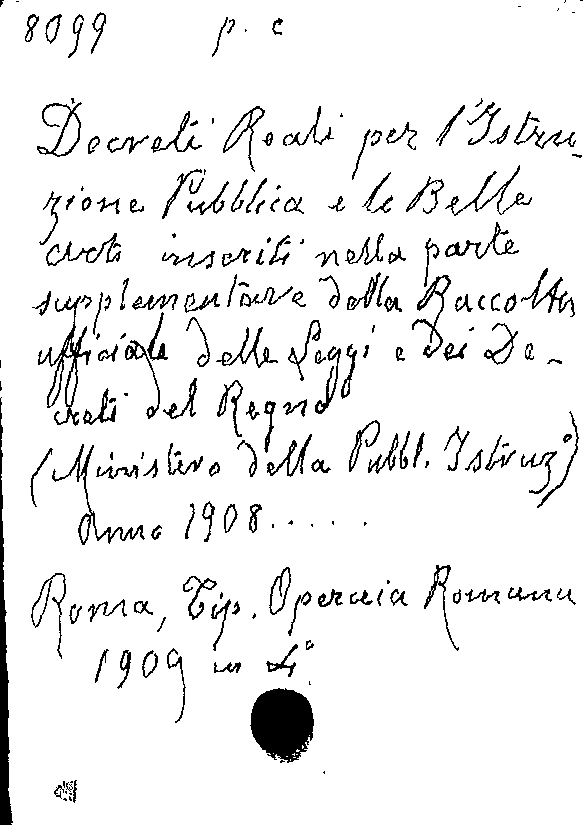 8099 p. c
Decreti Reali per l'Istru-
zione Pubblica e le Belle
arti inseriti nella parte
supplementare della Raccolta
ufficiale delle Leggi e dei De-
creti del Regno
(Ministero della Pubbl. Istruz°)
Anno 1908......
Roma, Tip. Operaia Romana
1909 in 4°